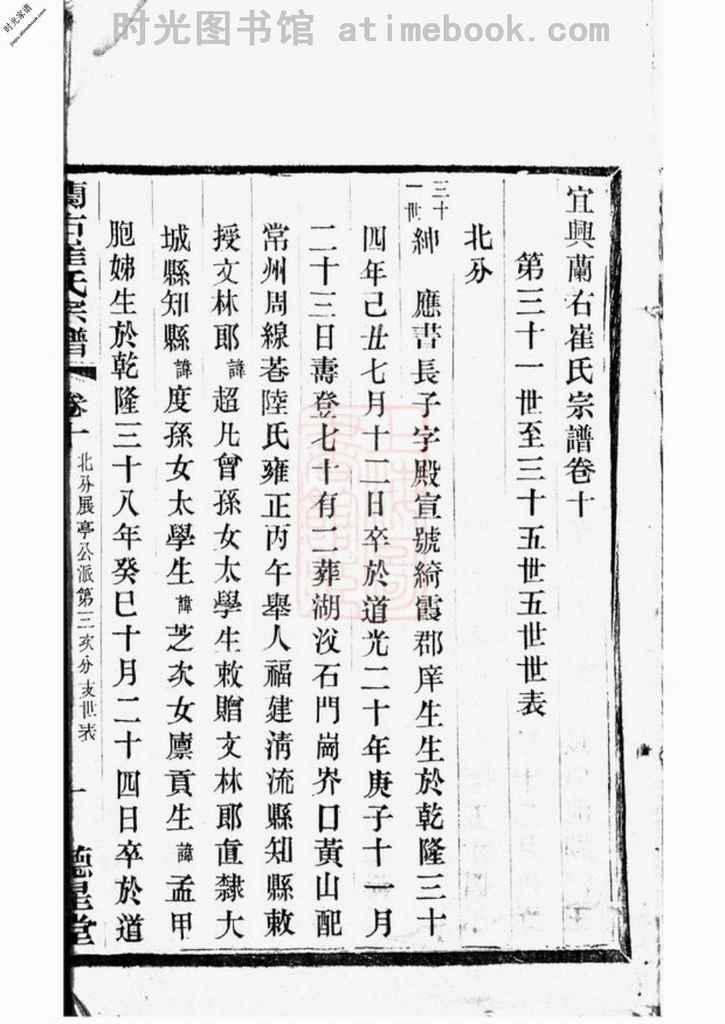 时光图书馆 atimebook.com
时光家谱
宜興蘭右崔氏宗譜卷十
第三十一世至三十五世五世世表
北分
三十一世
紳 應書長子字殿宣號綺霞郡庠生生於乾隆三十
四年己丑七月十二日卒於道光二十年庚子十一月
二十三日壽登七十有二葬湖㳇石門崗界口黃山配
常州周線巷陸氏雍正丙午舉人福建清流縣知縣敕
授文林郎諱超凡曾孫女太學生敕贈文林郎直隸大
城縣知縣諱度孫女太學生諱芝次女廩貢生諱孟甲
胞姊生於乾隆三十八年癸巳十月二十四日卒於道
蘭右崔氏宗譜 卷十 北分展亭公派第三次分支世表 一 德星堂